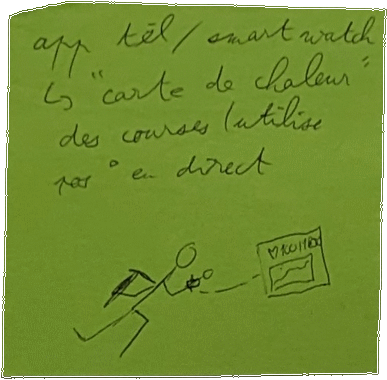 app tél/smartwatch
↳ "carte de chaleur"
des courses (utilise
pos° en direct